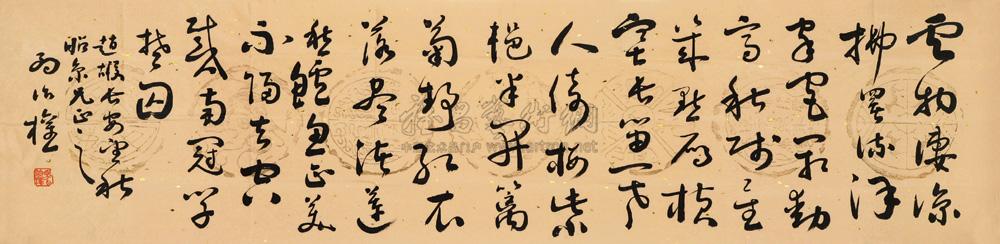 雲物淒涼
拂曙流漢
家宮闕動
高秋殘星
幾點雁橫
塞長笛一聲
人倚樓紫
艷半開籬
菊靜紅衣
落盡渚蓮
愁鱸魚正美
不歸去空
戴南冠學
楚囚
趙嘏長安望秋
兄正之